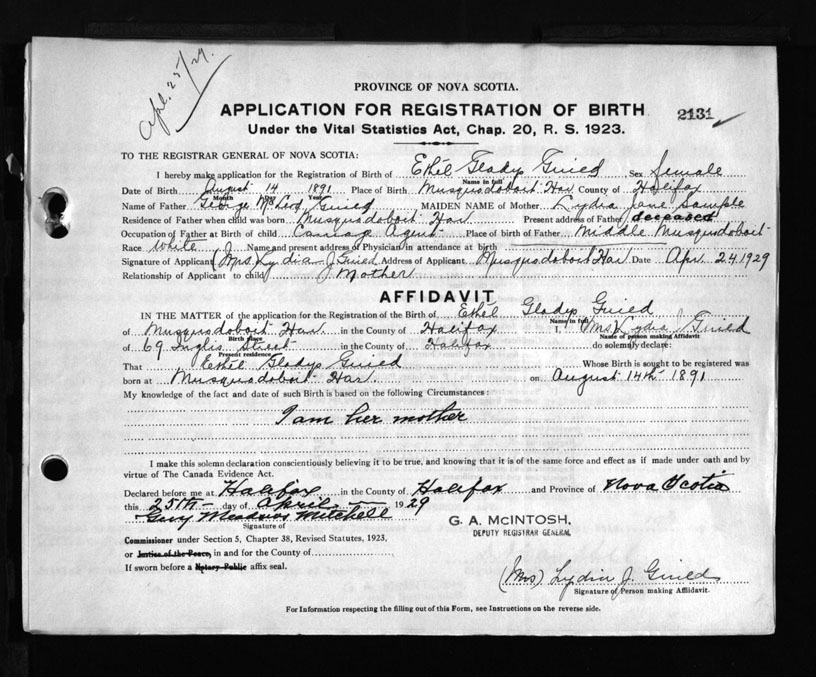 Apl. 25/29.
PROVINCE OF NOVA SCOTIA.
APPLICATION FOR REGISTRATION OF BIRTH 2131
Under the Vital Statistics Act, Chap. 20, R. S. 1923.
TO THE REGISTRAR GENERAL OF NOVA SCOTIA:
I hereby make application for the Registration of Birth of Ethel Gladys Guild Sex Female
Name in full
Date of Birth August 14 1891 Place of Birth Musquodoboit Har County of Halifax
Month Day Year
Name of Father George McLeod Guild MAIDEN NAME of Mother Lydia Jane Sample
Residence of Father when child was born Musquodoboit Har. Present address of Father deceased
Occupation of Father at Birth of child Cannag Agent Place of birth of Father Middle Musquodoboit
Race White Name and present address of Physician in attendance at birth
Signature of Applicant (Mrs) Lydia J Guild Address of Applicant Musquodoboit Har. Date Apr. 24 1929
Relationship of Applicant to child Mother
AFFIDAVIT
IN THE MATTER of the application for the Registration of the Birth of Ethel Gladys Guild
Name in full
of Musquodoboit Har. in the County of Halifax I, (Mrs) Lydia J Guild
Birth place Name of person making Affidavit
of 69 Inglis Street in the County of Halifax do solemnly declare:
Present residence
That Ethel Gladys Guild Whose Birth is sought to be registered was
born at Musquodoboit Har. on August 14th 1891
My knowledge of the fact and date of such Birth is based on the following Circumstances:
I am her mother
I make this solemn declaration conscientiously believing it to be true, and knowing that it is of the same force and effect as if made under oath and by
virtue of The Canada Evidence Act.
Declared before me at Halifax in the County of Halifax and Province of Nova Scotia
this 25th day of April 1929
Guy Meadows Mitchell
Signature of
G. A. McINTOSH,
DEPUTY REGISTRAR GENERAL
Commissioner under Section 5, Chapter 38, Revised Statutes, 1923.
or Justice of the Peace, in and for the County of
If sworn before a Notary Public affix seal.
(Mrs) Lydia J. Guild
Signature of Person making Affidavit.
For Information respecting the filling out of this Form, see Instructions on the reverse side.